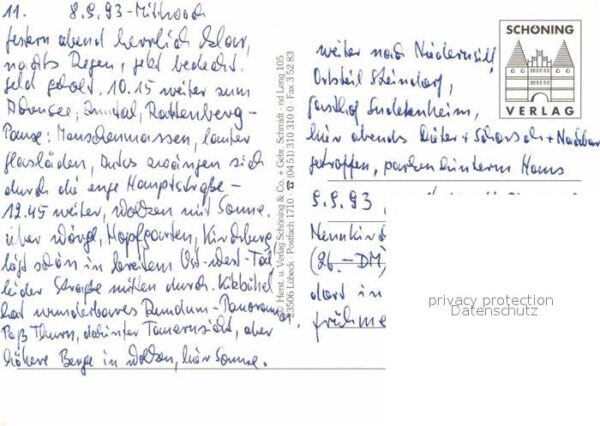 11. 8.9.93 - Mittwoch
gestern abend herrlich klar,
nachts Regen, jetzt bedeckt.
Geld geholt. 10.15 weiter zum
Achensee, Inntal, Rattenberg -
Pause: Menschenmassen, lauter
Glasläden, Autos zwängen sich
durch die enge Hauptstraße -
12.45 weiter, Wolken mit Sonne.
über Wörgl, Hopfgarten, Kirchberg
schön in breitem Ost-West-Tal
leider Straße mitten durch. Kitzbühel
hat wunderbares Rundum-Panorama.
Paß Thurn, dahinter Tauernsicht, aber
höhere Berge in Wolken, hier Sonne.
Herst. u. Verlag Schöning & Co. + Gebr. Schmidt
23506 Lübeck · Postfach 1710 · ☎ (04 51) 310 310 0 · Fax 3 52 83
SCHÖNING
VERLAG
weiter nach Niedernsill,
Ortsteil Steindorf,
Gasthof Sudetenheim,
hier abends Dieter + Schorsch + Nachbar
getroffen, parken hinterm Haus
9.9.93
Neunkirch
(26.-DM)
dort in
frühme
privacy protection
Datenschutz